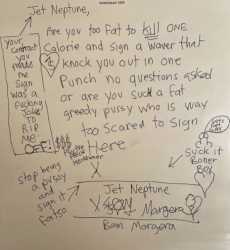 Jet Neptune,
Are you too Fat to kill ONE
Calorie and Sign a waver that
if I knock you out in one
Punch no questions asked
or are you such a fat
greedy pussy who is way
too Scared to Sign
Here
X
your
contract
you
made
me
Sign
was a
Fucking
Joke
TO
RIP
ME
OFF!
stop being
a pussy
and
sign it
fatso
suck it
Boner
Boy
Jet Neptune
X Margera
Bam Margera